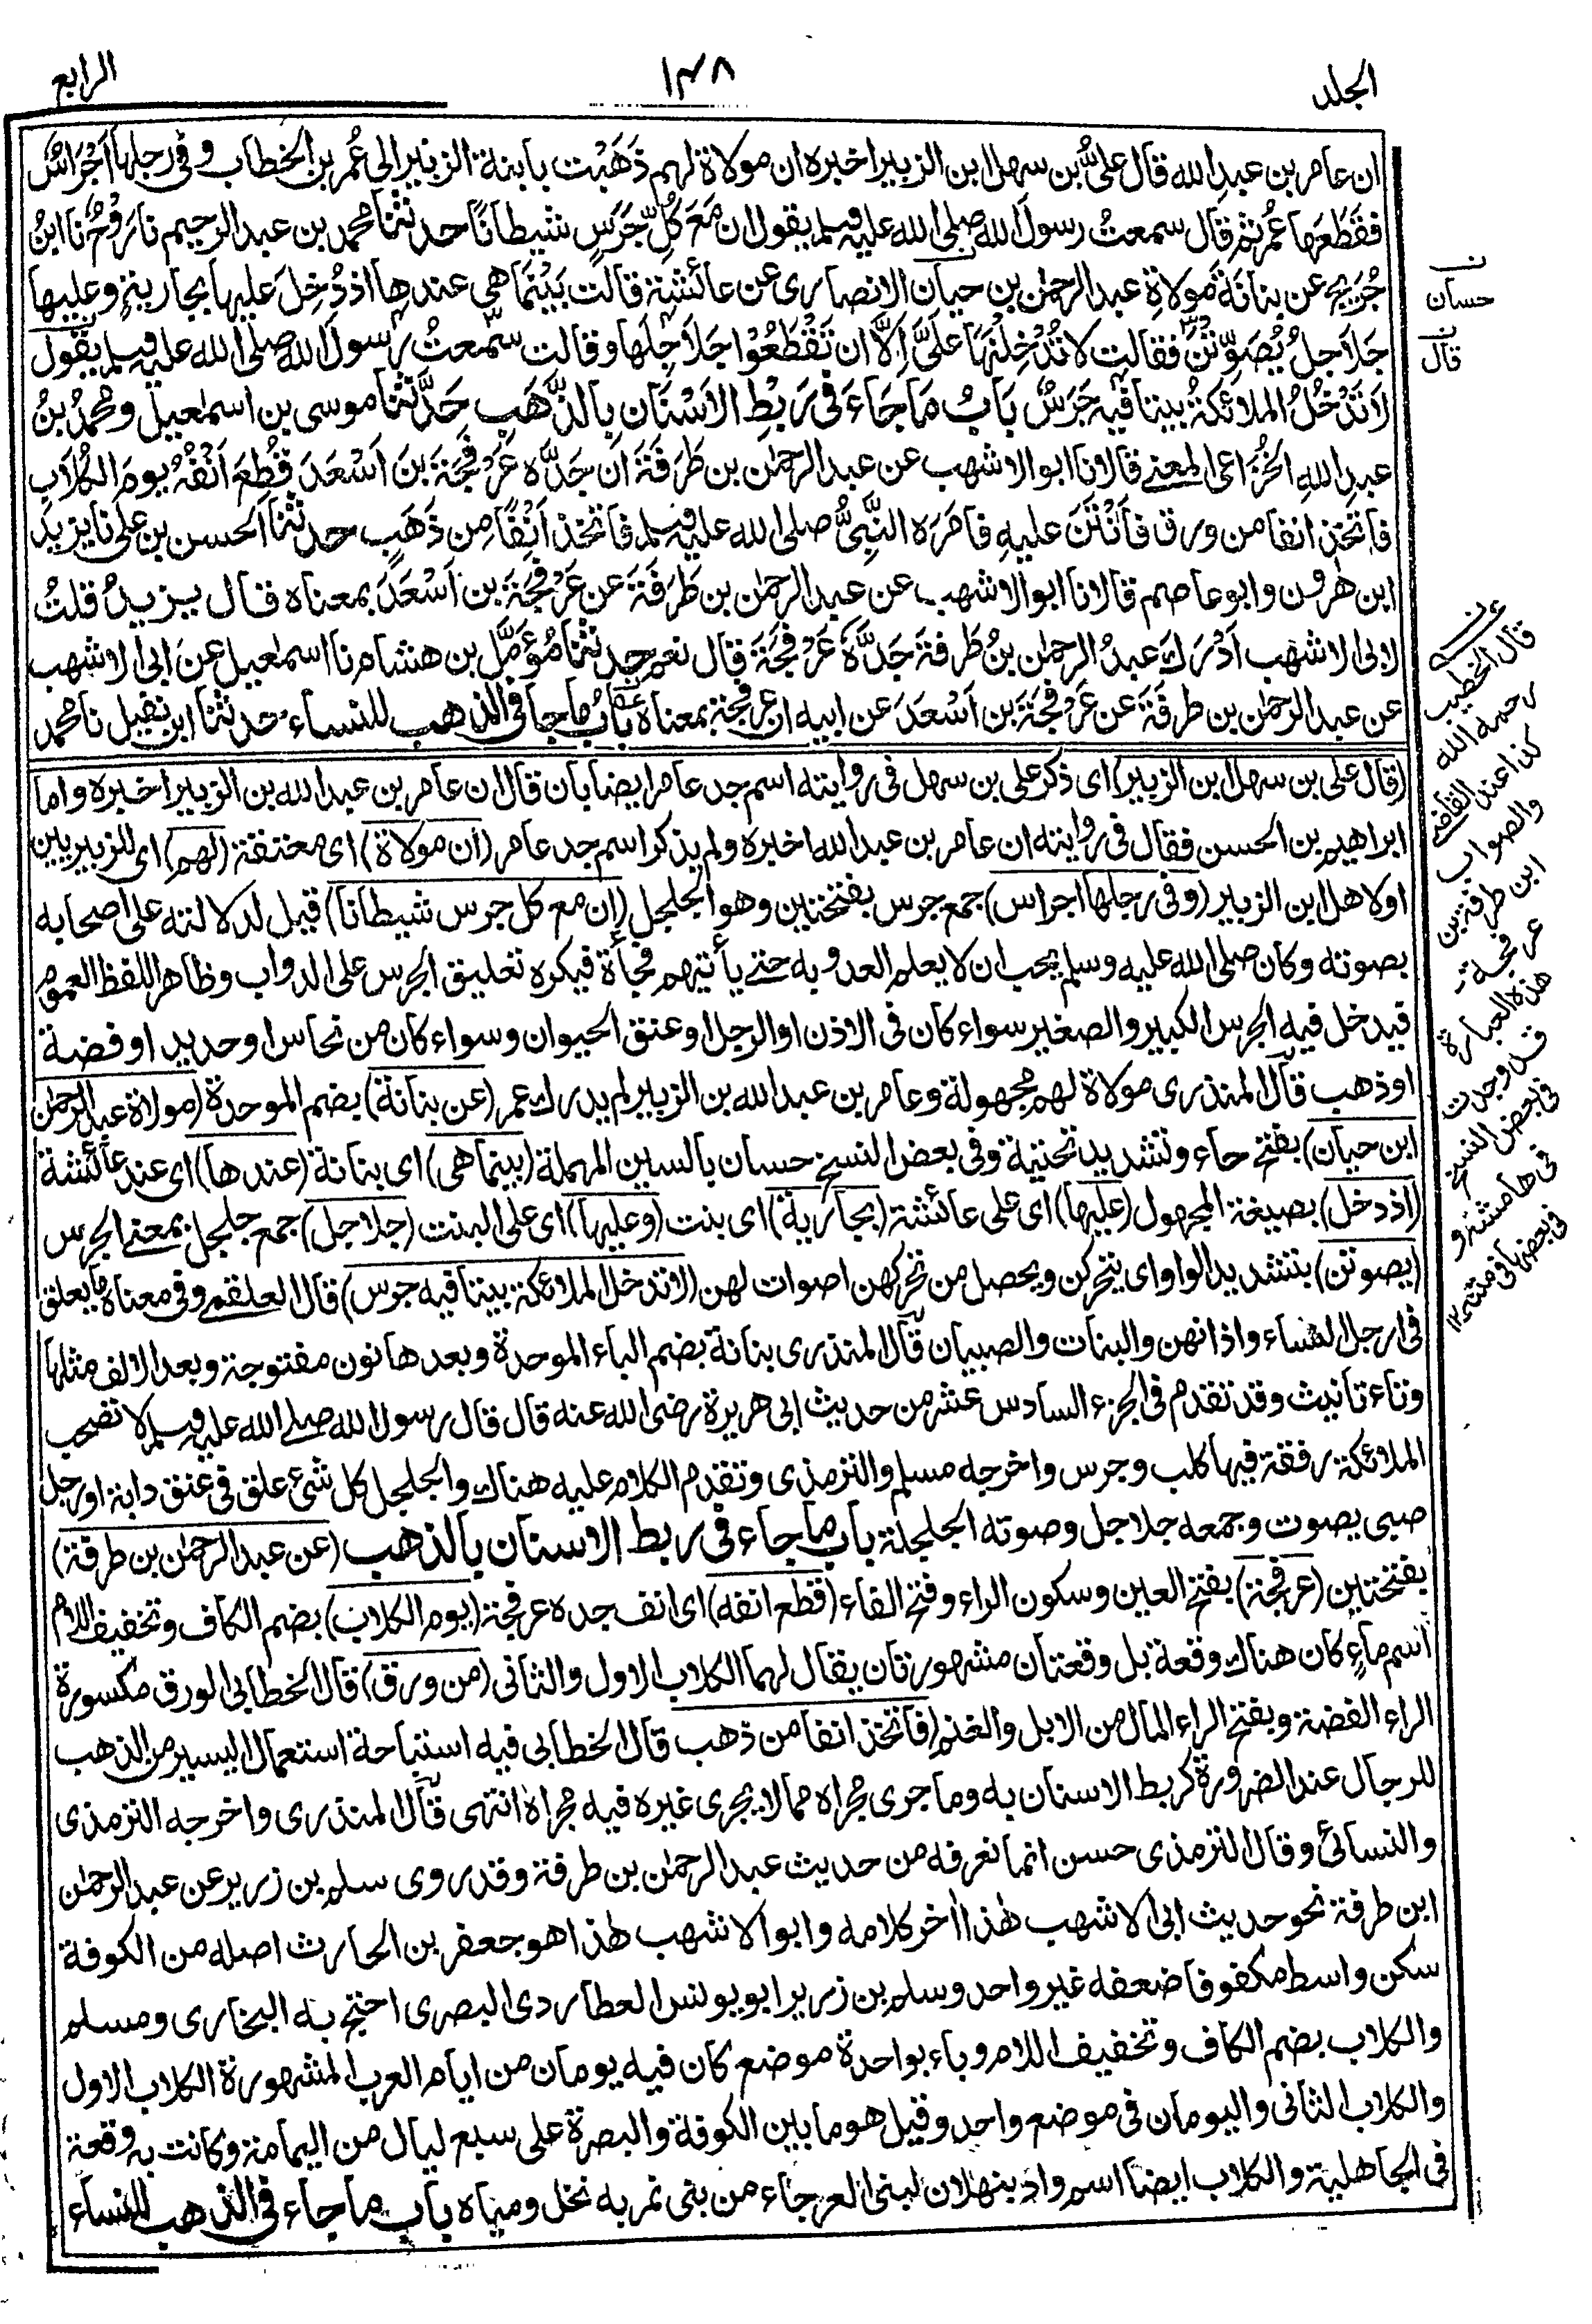 الجلد
١٣٨
الرابع
ان عامر بن عبدِ الله قال علىُّ بن سهل ابن الزبير اخبره ان مولاة لهم ذَهَبْت بابنة الزبير الى عُمر بن الخطاب و فى رجلها اَجْرَاسٌ
فقَطَعَها عُمر ثم قال سمعتُ رسولَ الله صلى الله عليه وسلم يقول ان مَعَ كُلِّ جَرَسٍ شيطانًا حدثنا محمد بن عبد الرحيم نا رَوْحٌ نا ابنُ
جُرَيجٍ عن بنانَةَ مَولاةِ عبد الرحمٰن بن حيان الانصارى عن عائشة قالت بَيْنَما هى عندها اذ دُخِلَ عليها بجاريةٍ وعليها
جَلَاجلُ يُصَوِّتْنَ فقالت لا تُدْخِلْنَها عَلَىَّ اِلَّا ان تَقْطَعُوا جَلَاجِلَها وقالت سمعتُ رسولَ الله صلى الله عليه وسلم يقول
لَا تَدْخُلُ الملائكةُ بيتا فيه جَرَسٌ بَابُ مَا جَاءَ فى رَبْطِ الاَسْنَانِ بِالذَّهَبِ حَدَّثنا موسى بن اسمٰعيل ومحمدُ بنُ
عبدِ اللهِ الخُزاعى المعنے قالا نا ابو الاشهب عن عبد الرحمٰن بن طَرَفَةَ ان جَدَّه عَرْفَجَةَ بنَ اَسْعَدَ قُطِعَ اَنْفُهُ يومَ الكُلَابِ
فاتخذ انفا من ورق فاَنْتَنَ عليهِ فامَرَه النَّبِىُّ صلى الله عليه وسلم فاتخذ اَنْفًا مِن ذَهَبٍ حدثنا الحسن بن على نا يزيدُ
ابن هٰرون وابو عاصم قالا نا ابو الاشهب عن عبد الرحمٰن بن طَرَفَةَ عن عَرْفَجَةَ بن اَسْعَدَ بمعناه قال يزيدُ قلتُ
لابى الاشهب اَدْرَكَ عبدُ الرحمٰن بنُ طَرفةَ جَدَّهُ عَرْفَجَةَ قال نعم حدثنا مُؤَمَّلُ بن هشام نا اسمٰعيل عن ابى الاشهب
عن عبد الرحمٰن بن طرفَةَ عن عَرْفَجَةَ بن اَسْعَدَ عن ابيه ان عرفجة بمعناه بَابُ ما جا فى الذهب للنساء حدثنا ابن نفيل نا محمد
(قال على بن سهل ابن الزبير) اى ذكر على بن سهل فى روايته اسم جد عامر ايضا بان قال ان عامر بن عبد الله بن الزبير اخبره واما
ابراهيم بن الحسن فقال فى روايته ان عامر بن عبد الله اخبره ولم يذكر اسم جد عامر (ان مولاة) اى معتقة (لهم) اى للزبيريين
او لاهل ابن الزبير (وفى رجلها اجراس) جمع جرس بفتحتين وهو الجلجل (ان مع كل جرس شيطانا) قيل لدلالته على اصحابه
بصوته وكان صلى الله عليه وسلم يحب ان لا يعلم العدو به حتے يأتيهم فجأة فيكره تعليق الجرس على الدواب وظاهر اللفظ العموم
فيدخل فيه الجرس الكبير والصغير سواء كان فى الاذن او الرجل او عنق الحيوان وسواء كان من نحاس او حديد او فضة
او ذهب قال المنذرى مولاة لهم مجهولة وعامر بن عبد الله بن الزبير لم يدرك عمر (عن بنانة) بضم الموحدة (مولاة عبد الرحمٰن
ابن حيان) بفتح حاء وتشديد تحتية وفى بعض النسخ حسان بالسين المهملة (بينما هى) اى بنانة (عندها) اى عند عائشة
(اذ دخل) بصيغة المجهول (عليها) اى على عائشة (بجارية) اى بنت (وعليها) اى على البنت (جلاجل) جمع جلجل بمعنے الجرس
(يصوتن) بتشديد الواو اى يتحركن ويحصل من تحركهن اصوات لهن (لا تدخل الملائكة بيتا فيه جرس) قال العلقمے وفى معناه ما يعلق
فى ارجل النساء واذانهن والبنات والصبيان قال المنذرى بنانة بضم الباء الموحدة وبعدها نون مفتوحة وبعد الالف مثلها
وتاء تانيث وقد تقدم فى الجزء السادس عشر من حديث ابى هريرة رضى الله عنه قال قال رسول الله صلے الله عليه وسلم لا تصحب
الملائكة رفقة فيها كلب وجرس واخرجه مسلم والترمذى وتقدم الكلام عليه هناك والجلجل كل شئ علق فى عنق دابة او رجل
صبى يصوت وجمعه جلاجل وصوته الجلجلة باب ما جاء فى ربط الاسنان بالذهب (عن عبد الرحمٰن بن طرفة)
بفتحتين (عرفجة) بفتح العين وسكون الراء وفتح الفاء (قطع انفه) اى انف جده عرفجة (يوم الكلاب) بضم الكاف وتخفيف اللام
اسم ماءٍ كان هناك وقعة بل وقعتان مشهورتان يقال لهما الكلاب الاول والثانى (من ورق) قال الخطابى الورق مكسورة
الراء الفضة وبفتح الراء المال من الابل والغنم (فاتخذ انفا من ذهب) قال الخطابى فيه استباحة استعمال اليسير من الذهب
للرجال عند الضرورة كربط الاسنان به وما جرى مجراه مما لا يجرى غيره فيه مجراه انتهى قال المنذرى واخرجه الترمذى
والنسائى وقال الترمذى حسن انما نعرفه من حديث عبد الرحمٰن بن طرفة وقد روى سلم بن زرير عن عبد الرحمٰن
ابن طرفة نحو حديث ابى الاشهب هٰذا اخر كلامه وابو الاشهب هٰذا هو جعفر بن الحارث اصله من الكوفة
سكن واسط مكفوفا ضعفه غير واحد وسلم بن زرير ابو يونس العطاردى البصرى احتج به البخارى ومسلم
والكلاب بضم الكاف وتخفيف اللام وباء بواحدة موضع كان فيه يومان من ايام العرب المشهورة الكلاب الاول
والكلاب الثانى واليومان فى موضع واحد وقيل هو ما بين الكوفة والبصرة على سبع ليال من اليمامة وكانت به وقعة
فى الجاهلية والكلاب ايضا اسم واد بنهلان لبنى العرجاء من بنى نمر به نخل ومياه باب ما جاء فى الذهب للنساء
ن
حسان
ن
قال
قال الخطيب
رحمه الله
كذا عند القاضى
والصواب
ابن طرفة بن
عرفجة
هذه العبارة
قد وجدت
فى بعض النسخ
فى هامشه و
فى بعضها فى متنه ١٢